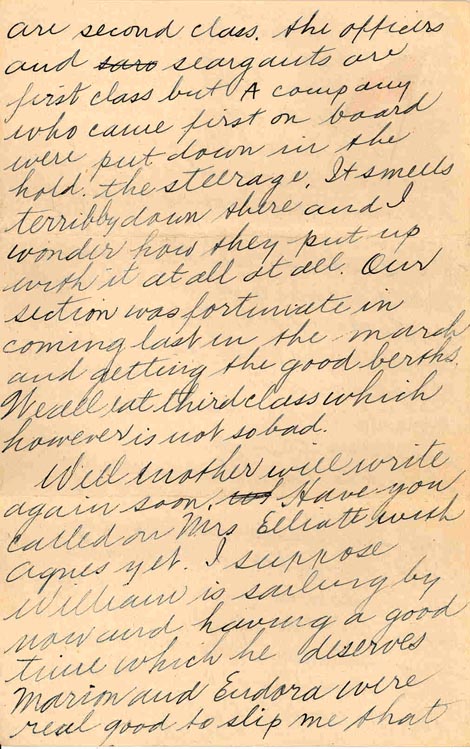 are second class. the officers
and saro seargants are
first class but A company
who came first on board
were put down in the
hold. the steerage. It smells
terribly down there and I
wonder how they put up
with it at all at all. Our
section was fortunate in
coming last in the march
and getting the good berths.
We all eat third class which
however is not so bad.
Well Mother will write
again soon. Have you
called on Mrs Elliatt with
Agnes yet. I suppose
William is sailing by
now and having a good
time which he deserves
Marion and Eudora were
real good to slip me that